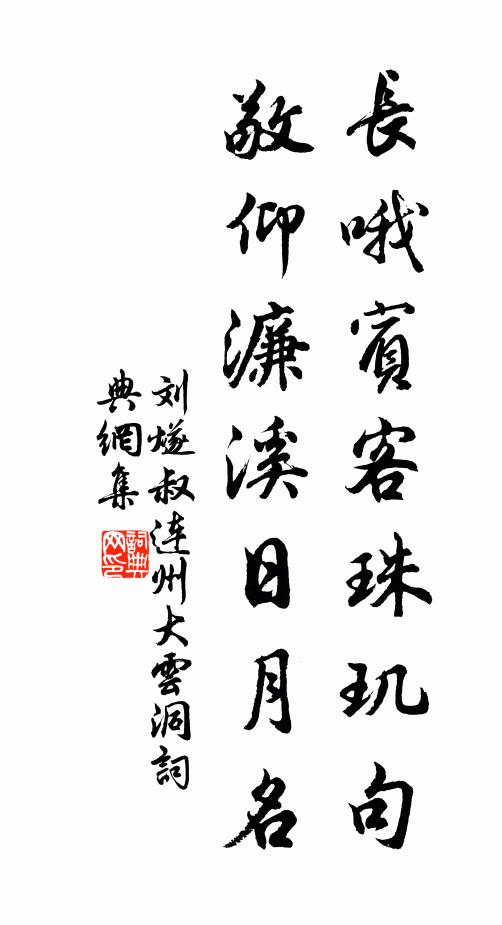 長哦賓客珠玑句
敬仰濂溪日月名
刘燧叔连州大雲洞詞
典網集
詞典
网印